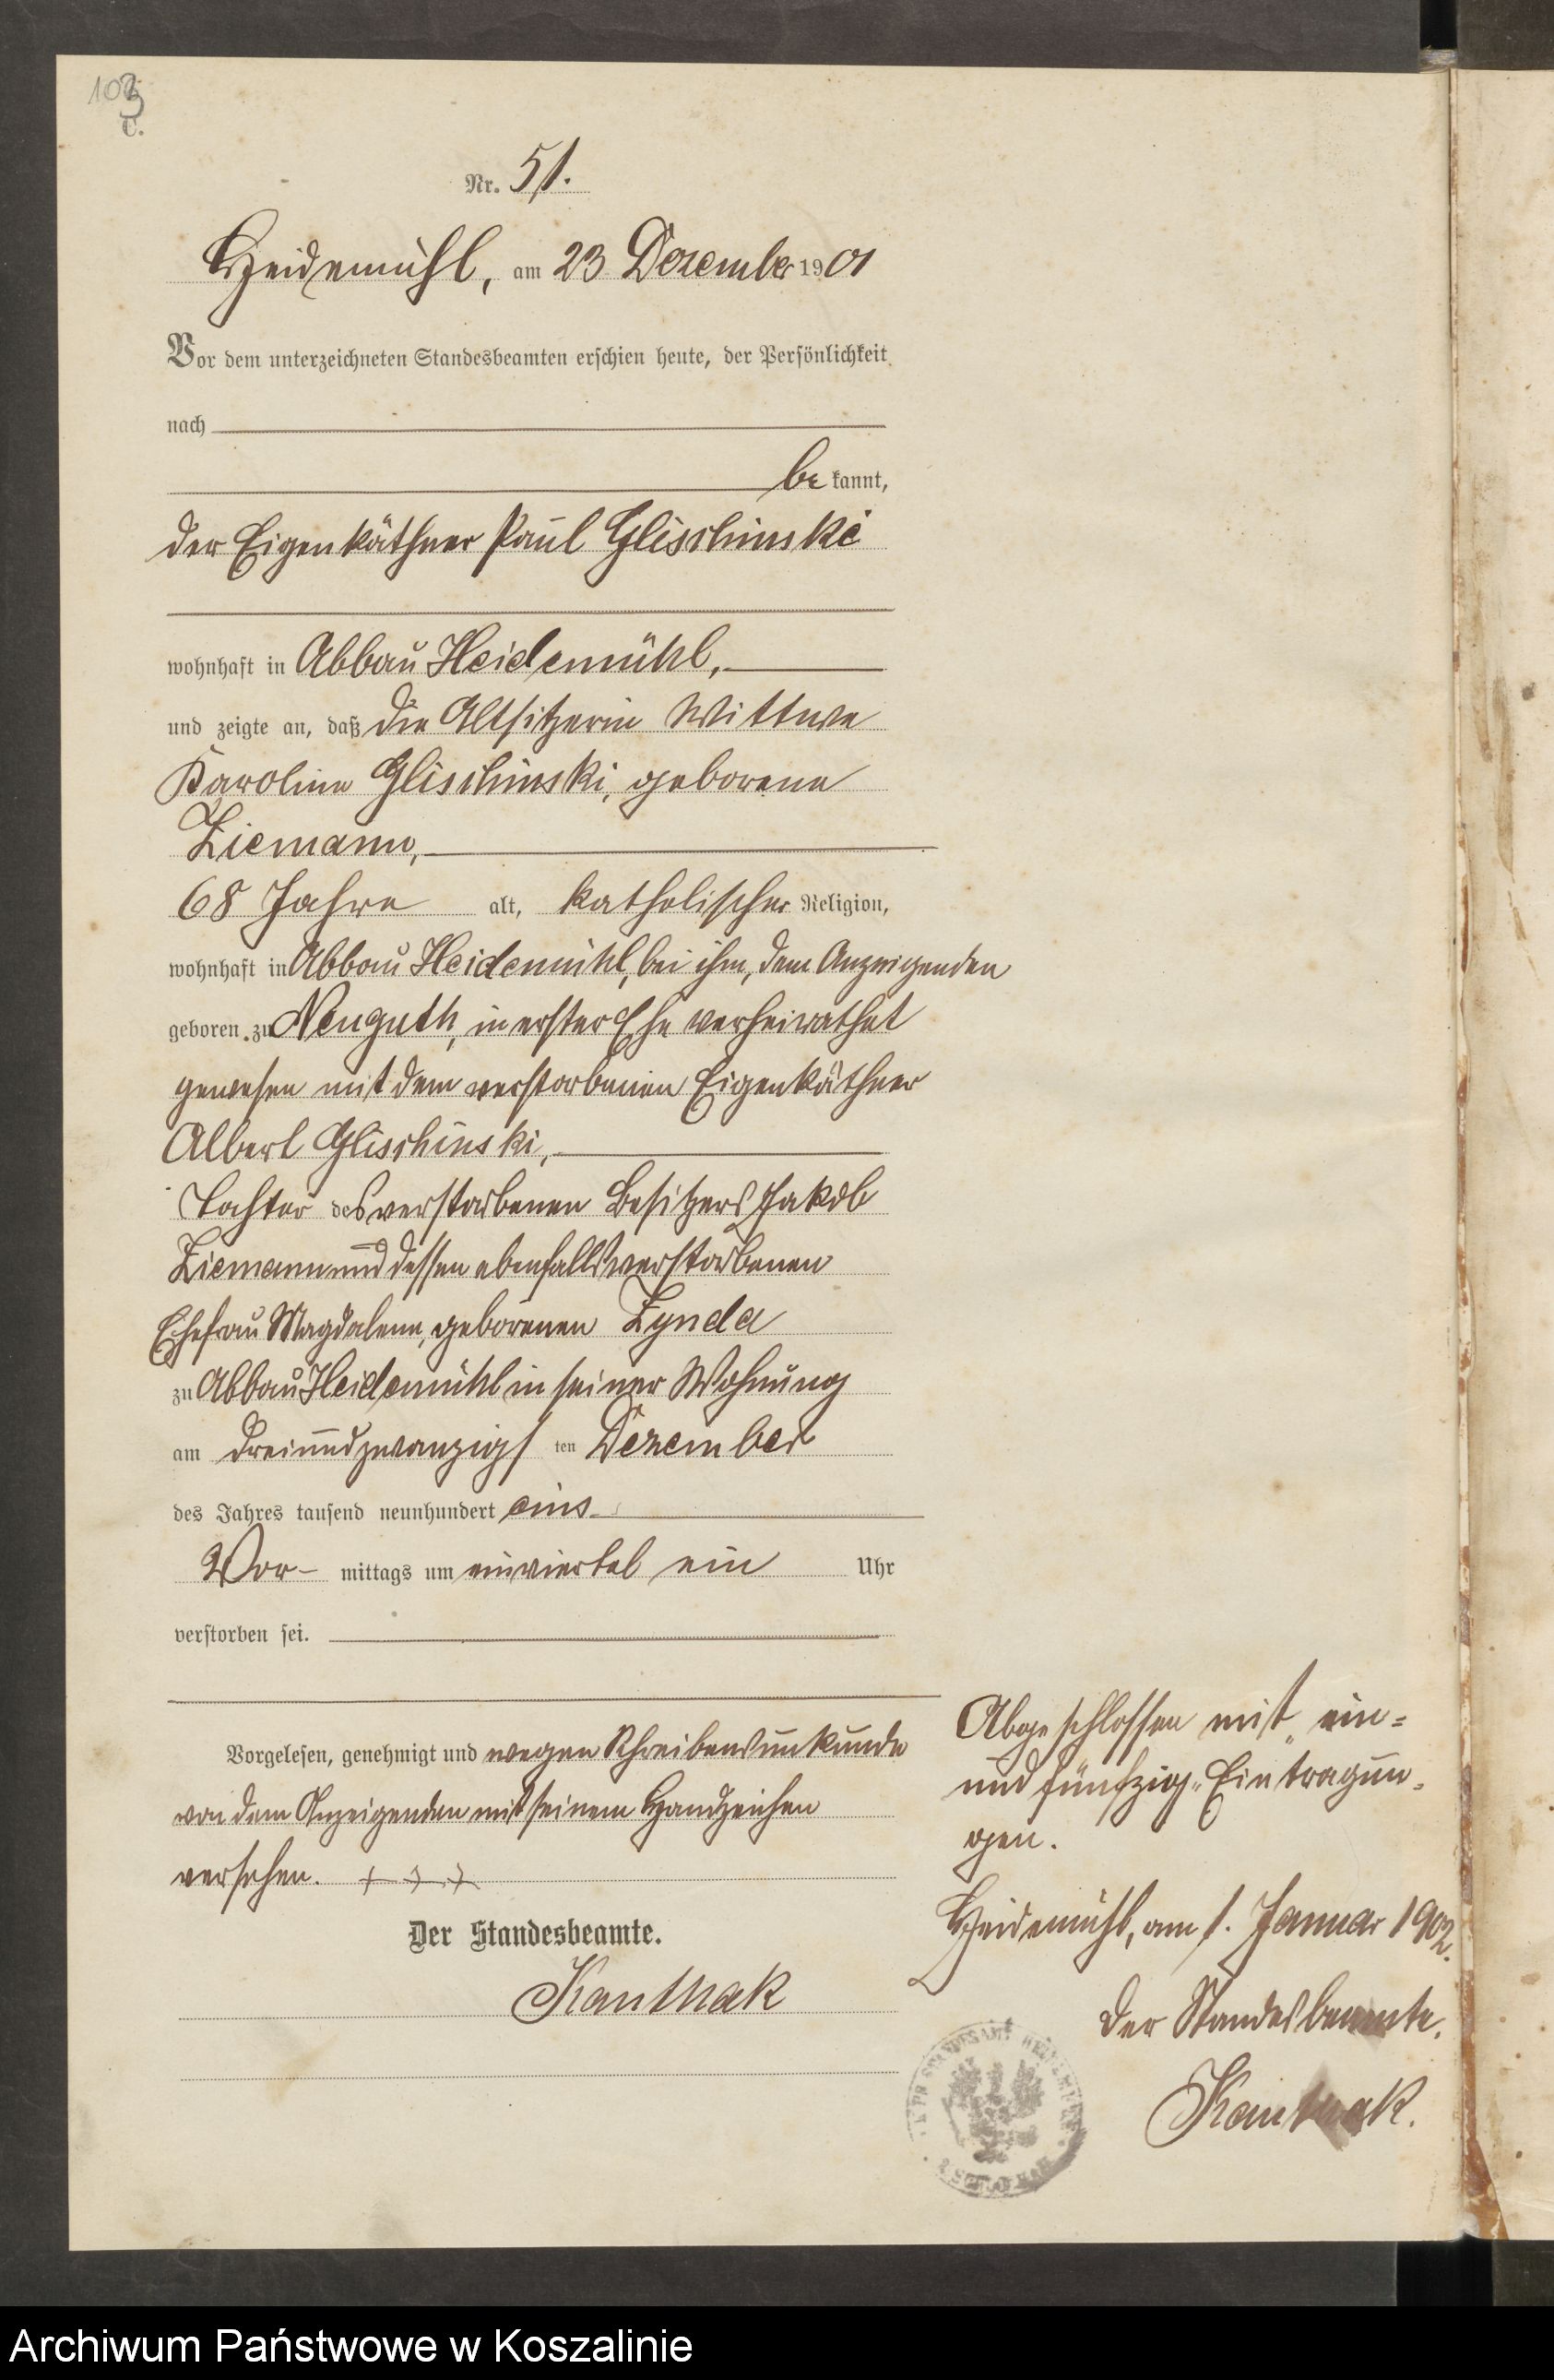 103
C.
Nr. 51.
Heidemühl, am 23 Dezember 1901
Vor dem unterzeichneten Standesbeamten erschien heute, der Persönlichkeit
nach
be kannt,
der Eigenkäthner Paul Glischinski
wohnhaft in Abbau Heidemühl,
und zeigte an, daß die Altsitzerin Wittwe
Karoline Glischinski, geborene
Ziemann,
68 Jahre alt, katholischer Religion,
wohnhaft in Abbau Heidemühl, bei ihm, dem Anzeigenden
geboren zu Neuguth, in erster Ehe verheirathet
gewesen mit dem verstorbenen Eigenkäthner
Albert Glischinski,
Tochter des verstorbenen Besitzers Jakob
Ziemann und dessen ebenfalls verstorbenen
Ehefrau Magdalene, geborenen Lynda
zu Abbau Heidemühl in seiner Wohnung
am dreiundzwanzigs ten Dezember
des Jahres tausend neunhundert eins
Vor- mittags um einviertel ein Uhr
verstorben sei.
Vorgelesen, genehmigt und wegen Schreibensunkunde
von dem Anzeigenden mit seinem Handzeichen
versehen. + + +
Der Standesbeamte.
Kanthak
Abgeschlossen mit „ein=
und fünfzig“ Eintragun=
gen.
Heidemühl, am 1. Januar 1902.
Der Standesbeamte.
Kanthak.
Archiwum Państwowe w Koszalinie